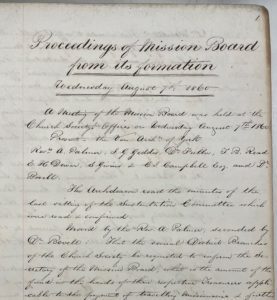 1
Proceedings of Mission Board
from its formation
Wednesday August 7th 1860
A Meeting of the Mission Board was held at the
Church Society's Offices on Wednesday August 7th 1860
Present the Ven. Archd. of York
Revd. A. Palmer, J G Geddes, Dr. Fuller, T. B. Read
E H Dewar, S Givins & E C Campbell Esq. and Dr
Bovell.
The Archdeacon read the minutes of the
last meeting of the Sustentation Committee which
were read & confirmed.
Moved by the Rev A Palmer, seconded by
Dr. Bovell. That the several District Branches
of the Church Society be requested to inform the Se-
cretary of the Mission Board, what is the amount of the
funds in the hands of their respective Treasurers appli-
cable to the payment of travelling Missionaries &